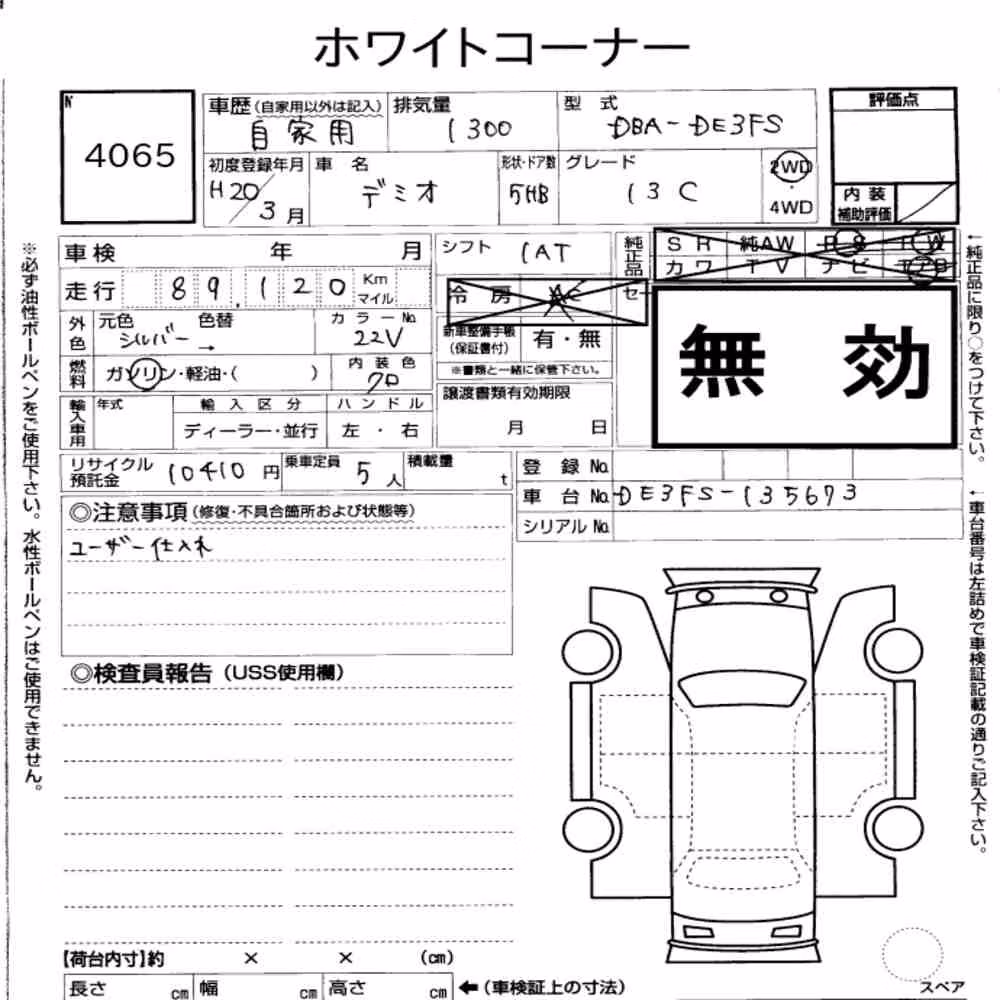 ホワイトコーナー
№
4065
車歴(自家用以外は記入)
自家用
排気量
1300
型 式
DBA-DE3FS
評価点
初度登録年月
H20/3月
車 名
デミオ
形状・ドア数
5HB
グレード
13C
2WD
・
4WD
内 装
補助評価
車検 年 月
シフト
1AT
純正品
SR 純AW PS PW
カワ TV ナビ
走行 89,120 Km
マイル
冷 房 AC
外色
元色 色替
シルバー →
カ ラ ー №
22V
新車整備手帳
(保証書付)
有・無
※書類と一緒に保管下さい。
無 効
燃料
ガソリン・軽油・( )
内 装 色
クロ
輸入車用
年式
輸 入 区 分
ディーラー・並行
ハ ン ド ル
左 ・ 右
譲渡書類有効期限
月 日
リサイクル
預託金
10410 円
乗車定員
5人
積載量
t
登 録 №
車 台 № DE3FS-135673
シリアル №
◎注意事項(修復・不具合箇所および状態等)
ユーザー仕入れ
◎検査員報告(USS使用欄)
【荷台内寸】約 × × (cm)
長さ cm 幅 cm 高さ cm ←(車検証上の寸法)
スペア
※必ず油性ボールペンをご使用下さい。水性ボールペンはご使用できません。
←純正品に限り○をつけて下さい。
←車台番号は左詰めで車検証記載の通りご記入下さい。